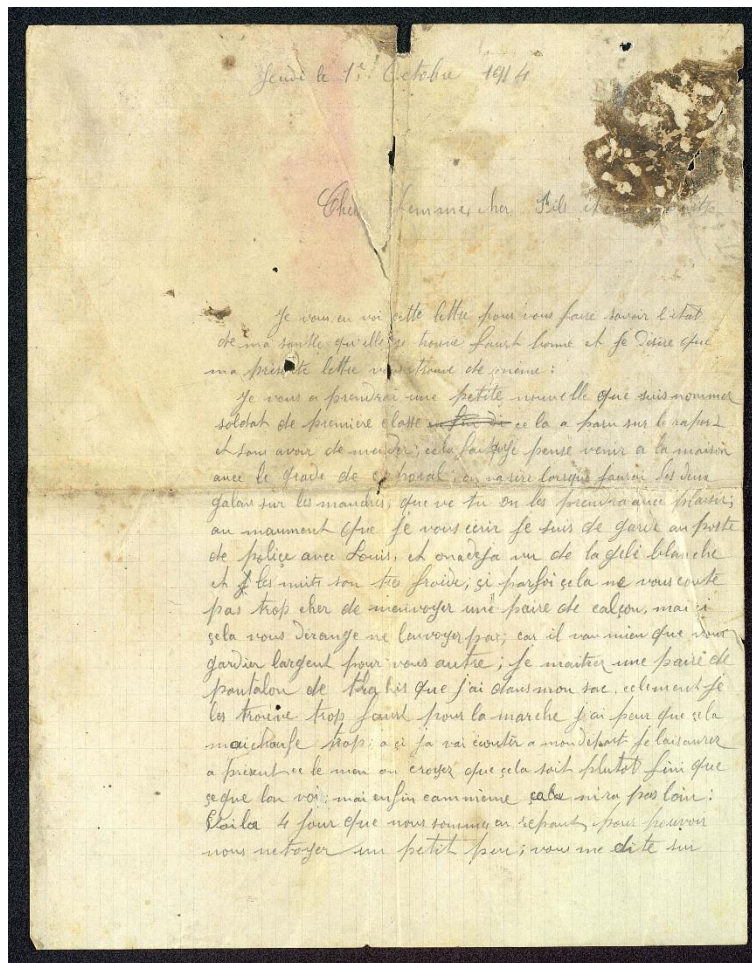 Jeudi le 1er Octobre 1914
Cher femme, cher Fils et
Je vous en voi cette lettre pour vous faire savoir l'état
de ma santée qu'elle se trouve faurt bonne et je désire que
ma présente lettre vous trouve de même :
Je vous a prendrai une petite nouvelle que suis nommer
soldat de première classe ce la a paru sur le raport
et sans avoir de mender ; cela je pense venir a la maison
avec le grade de caporal ; on va rire lorsque jaurai les deux
galons sur les manches, que ve tu on les prendra avec plaisir ;
au maument que je vous écrir je suis de garde au poste
de poliçe avec Louis, et on a deja vu de la gelé blanche
et les nuits son trè froide ; çi parfoi çela ne vous coute
pas trop cher de menvoyer une paire de calçon, mai çi
çela vous dérange ne lanvoyer pas ; car il vau mieu que vous
gardier largent pour vous autre ; je maitrez une paire de
pantalon de que j'ai dans mon sac, celement je
les trouve trop faurt pour la marche j'ai peur que çela
maichaufe trop ; a çi ja vai écouter a mon départ je laisaurez
a présent ce le men on croyez que çela soit plutot fini que
çe que lon voi ; mai enfin cammême çala nira pas loin :
Voila 4 jour que nous somme au repaut pour pouvoir
nous netoyer un petit peu ; vous me dite sur